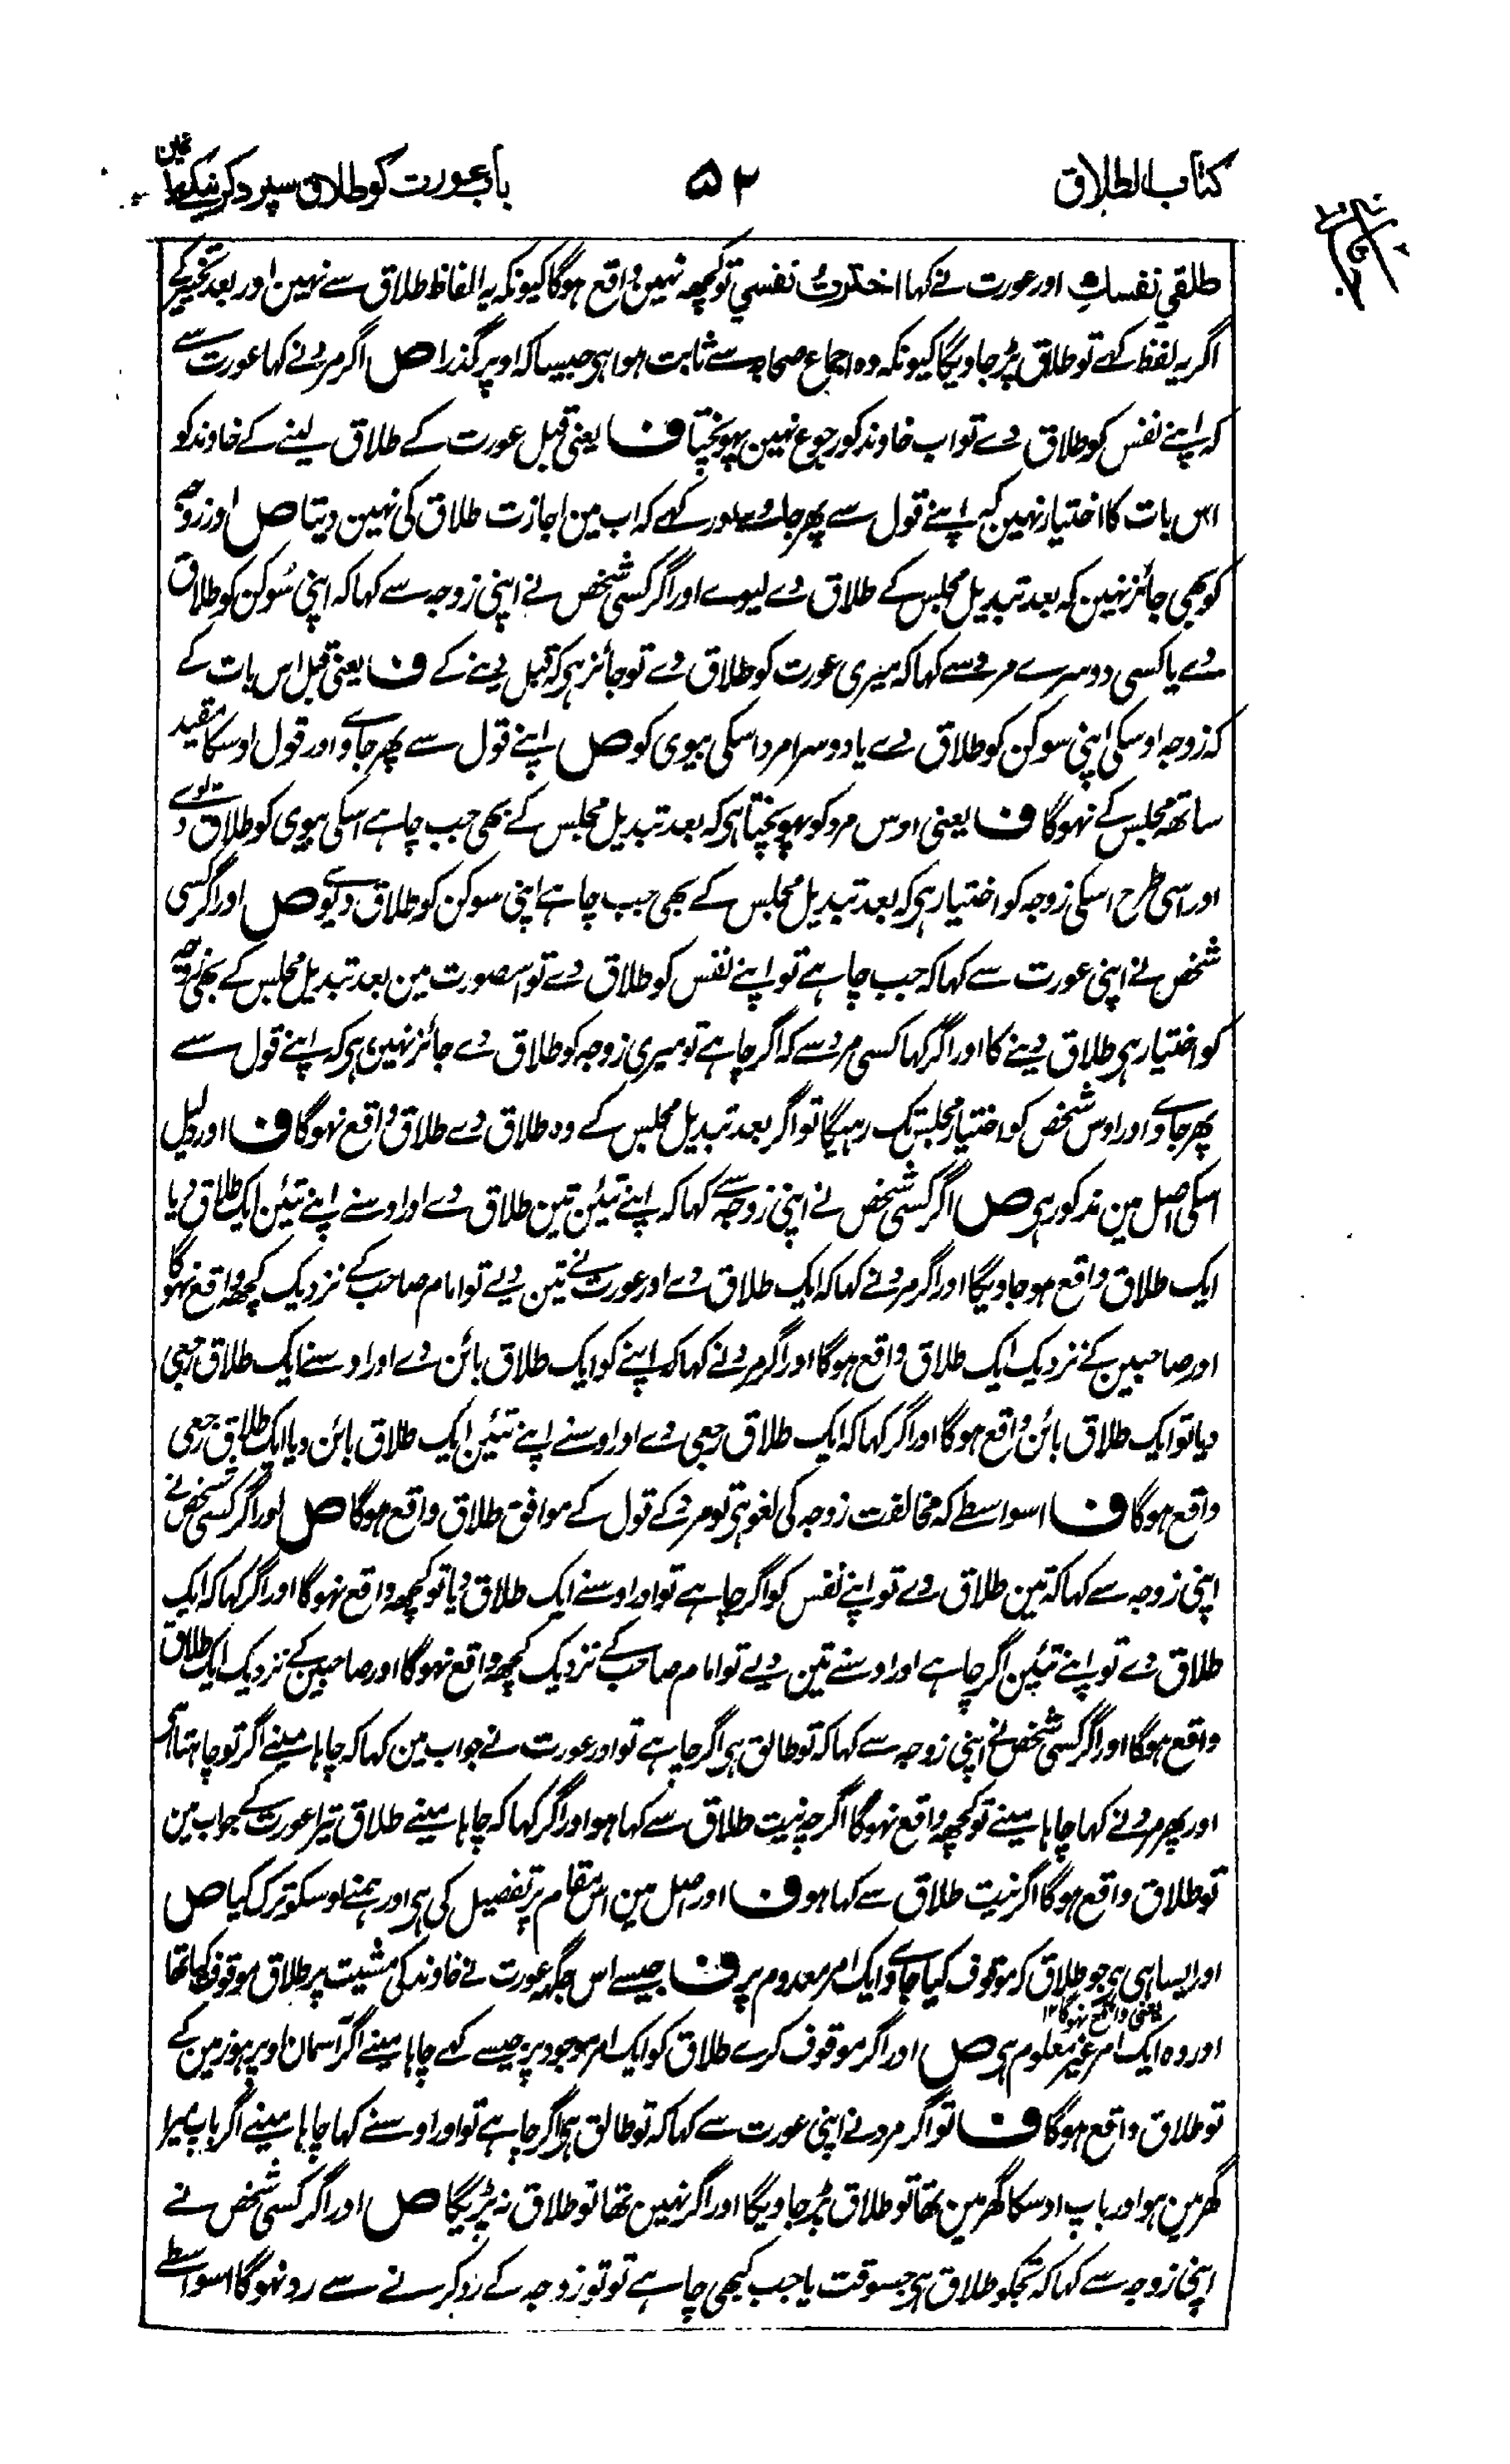 کتاب الطلاق
۵۲
باب عورت کو طلاق سپرد کرنیکے بیان مین
طلقی نفسك اور عورت نے کہا اخترت نفسی تو کچھ نہین واقع ہوگا کیونکہ یہ الفاظ طلاق سے نہین اور بعد تخییر کے
اگر یہ لفظ کہے تو طلاق پڑ جاویگا کیونکہ وہ اجماع صحابہ سے ثابت ہوا ہی جیسا کہ اوپر گذرا ص اگر مرد نے کہا عورت سے
کہ اپنے نفس کو طلاق دے تو اب خاوند کو رجوع نہین پہونچتا ف یعنی قبل عورت کے طلاق لینے کے خاوند کو
اس بات کا اختیار نہین کہ اپنے قول سے پھر جاوے اور کہے کہ اب مین اجازت طلاق کی نہین دیتا ص اور زوجہ
کو بھی جائز نہین کہ بعد تبدیل مجلس کے طلاق دے لیوے اور اگر کسی شخص نے اپنی زوجہ سے کہا کہ اپنی سُوکن کو طلاق
دے یا کسی دوسرے مرد سے کہا کہ میری عورت کو طلاق دے تو جائز ہی کہ قبل دینے کے ف یعنی قبل اس بات کے
کہ زوجہ اوسکی اپنی سوکن کو طلاق دے یا دوسرا مرد اسکی بیوی کو ص اپنے قول سے پھر جاوے اور قول اوسکا مقید
ساتھ مجلس کے نہوگا ف یعنی اوس مرد کو پہونچتا ہی کہ بعد تبدیل مجلس کے بھی جب چاہے اسکی بیوی کو طلاق دیوے
اور اسی طرح اسکی زوجہ کو اختیار ہی کہ بعد تبدیل مجلس کے بھی جب چاہے اپنی سوکن کو طلاق دیوے ص اور اگر کسی
شخص نے اپنی عورت سے کہا کہ جب چاہے تو اپنے نفس کو طلاق دے تو اسصورت مین بعد تبدیل مجلس کے بھی زوجہ
کو اختیار ہی طلاق دینے کا اور اگر کہا کسی مرد سے کہ اگر چاہے تو میری زوجہ کو طلاق دے جائز نہین ہی کہ اپنے قول سے
پھر جاوے اور اوس شخص کو اختیار مجلس تک رہیگا تو اگر بعد تبدیل مجلس کے وہ طلاق دے طلاق واقع نہوگا ف اور دلیل
اسکی اصل مین مذکور ہی ص اگر کسی شخص نے اپنی زوجہ سے کہا کہ اپنے تئین تین طلاق دے اور اوسنے اپنے تئین ایک طلاق دیا
ایک طلاق واقع ہو جاویگا اور اگر مرد نے کہا کہ ایک طلاق دے اور عورت نے تین دیے تو امام صاحب کے نزدیک کچھ واقع نہوگا
اور صاحبین کے نزدیک ایک طلاق واقع ہوگا اور اگر مرد نے کہا کہ اپنے کو ایک طلاق بائن دے اور اوسنے ایک طلاق رجعی
دیا تو ایک طلاق بائن واقع ہوگا اور اگر کہا کہ ایک طلاق رجعی دے اور اوسنے اپنے تئین ایک طلاق بائن دیا ایک طلاق رجعی
واقع ہوگا ف اسواسطے کہ مخالفت زوجہ کی لغو ہی تو مرد کے قول کے موافق طلاق واقع ہوگا ص اور اگر کسی شخص نے
اپنی زوجہ سے کہا کہ تین طلاق دے تو اپنے نفس کو اگر چاہے تو اور اوسنے ایک طلاق دیا تو کچھ واقع نہوگا اور اگر کہا کہ ایک
طلاق دے تو اپنے تئین اگر چاہے اور اوسنے تین دیے تو امام صاحب کے نزدیک کچھ واقع نہوگا اور صاحبین کے نزدیک ایک طلاق
واقع ہوگا اور اگر کسی شخص نے اپنی زوجہ سے کہا کہ تو طالق ہی اگر چاہے تو اور عورت نے جواب مین کہا کہ چاہا مینے اگر تو چاہتا ہی
اور پھر مرد نے کہا چاہا مینے تو کچھ واقع نہوگا اگرچہ نیت طلاق سے کہا ہو اور اگر کہا کہ چاہا مینے طلاق تیرا عورت کے جواب مین
تو طلاق واقع ہوگا اگر نیت طلاق سے کہا ہو ف اور اصل مین اس مقام پر تفصیل کی ہی اور ہمنے اوسکو ترک کیا ص
اور ایسا ہی ہی جو طلاق کہ موقوف کیا جاوے ایک امر معدوم پر ف جیسے اس جگہہ عورت نے خاوند کی مشیت پر طلاق موقوف رکھا تھا
یعنی واقع نہوگا ۱۲
اور وہ ایک امر غیر معلوم ہی ص اور اگر موقوف کرے طلاق کو ایک امر موجود پر جیسے کہے چاہا مینے اگر آسمان اوپر ہو زمین کے
تو طلاق واقع ہوگا ف تو اگر مرد نے اپنی عورت سے کہا کہ تو طالق ہی اگر چاہے تو اور اوسنے کہا چاہا مینے اگر باپ میرا
گھر مین ہو اور باپ اوسکا گھر مین تھا تو طلاق پڑ جاویگا اور اگر نہین تھا تو طلاق نہ پڑیگا ص اور اگر کسی شخص نے
اپنی زوجہ سے کہا کہ تجکو طلاق ہی جسوقت یا جب کبھی چاہے تو تو زوجہ کے رد کرنے سے رد نہوگا اسواسطے